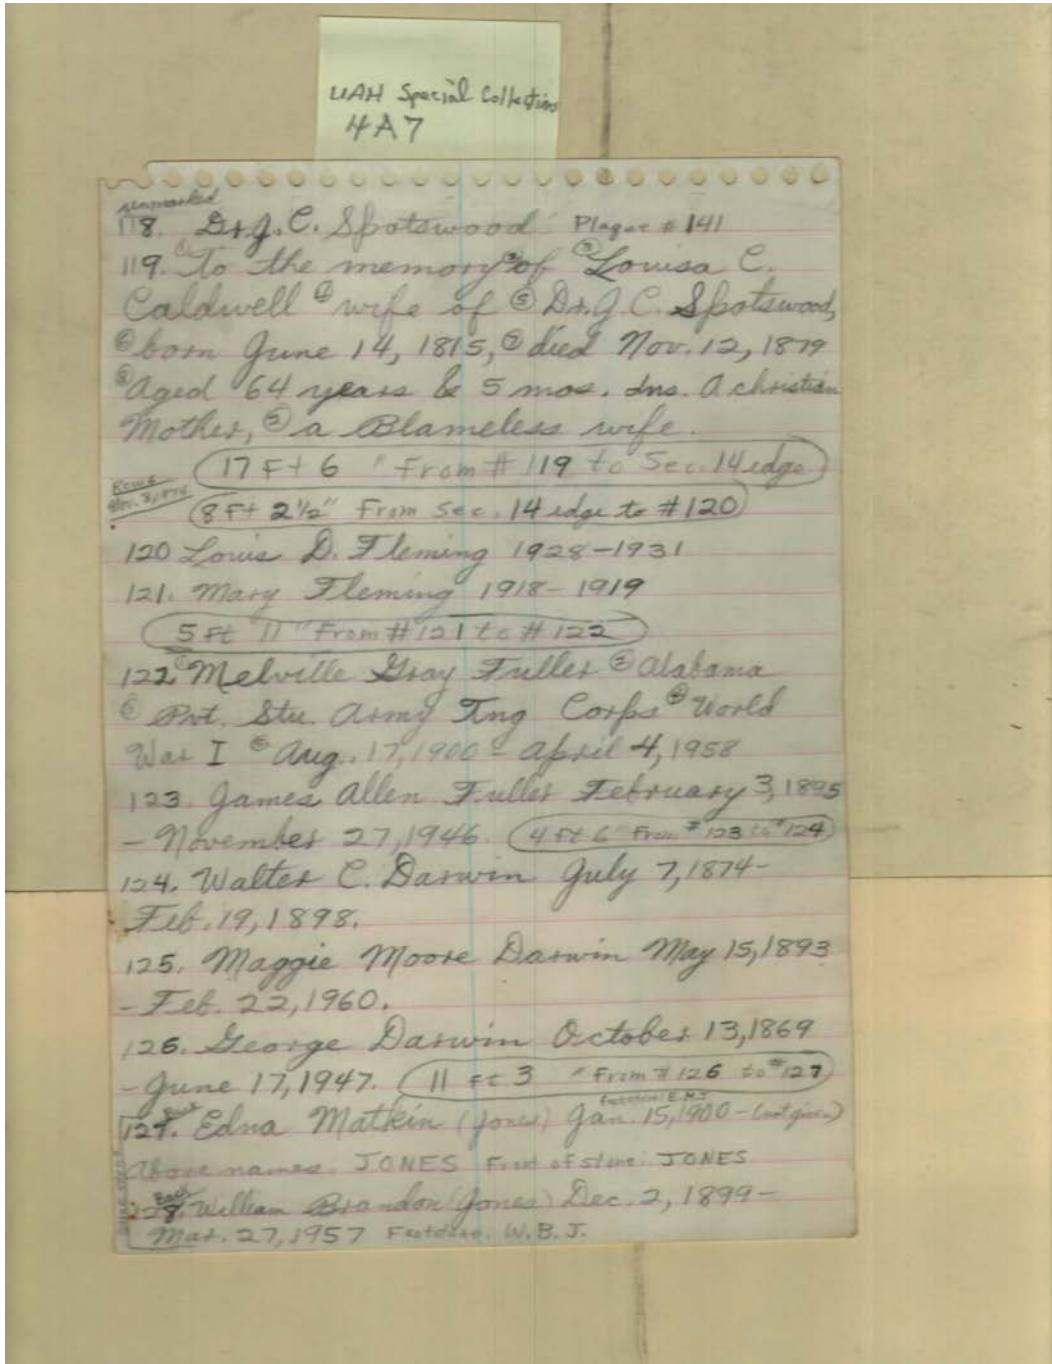 UAH Special Collections
4A7
unmarked
118. Dr. J. C. Spotswood Plaque # 141
119. ①To the memory ②of ③Louisa C.
Caldwell ④wife of ⑤Dr. J. C. Spotswood,
⑥born June 14, 1815, ⑦died Nov. 12, 1879
⑧Aged 64 years & 5 mos. Ins. A christian
Mother, ② a Blameless wife.
17 Ft 6 " From # 119 to Sec. 14 edge
Row 2
8 Ft 2½" From Sec. 14 edge to #120
120 Louis D. Fleming 1928-1931
121. Mary Fleming 1918-1919
5 Ft 11" From #121 to #122
122. ①Melville Gray Fuller ②Alabama
③ Pvt. Stu. Army Tng Corps ④ World
War I ⑤ Aug. 17, 1900 - April 4, 1958
123. James Allen Fuller February 3, 1895
- November 27, 1946. 4 Ft 6" From #123 to #124
124. Walter C. Darwin July 7, 1874-
Feb. 19, 1898.
125. Maggie Moore Darwin May 15, 1893
- Feb. 22, 1960.
126. George Darwin October 13, 1869
- June 17, 1947. 11 ft 3 " From # 126 to #127
Back footstone E.M.J.
127. Edna Matkin (Jones) Jan. 15, 1900 - (not given)
Above names. JONES Front of stone. JONES
Back
128. William Brandon (Jones) Dec. 2, 1899-
Mar. 27, 1957 Footstone. W.B.J.